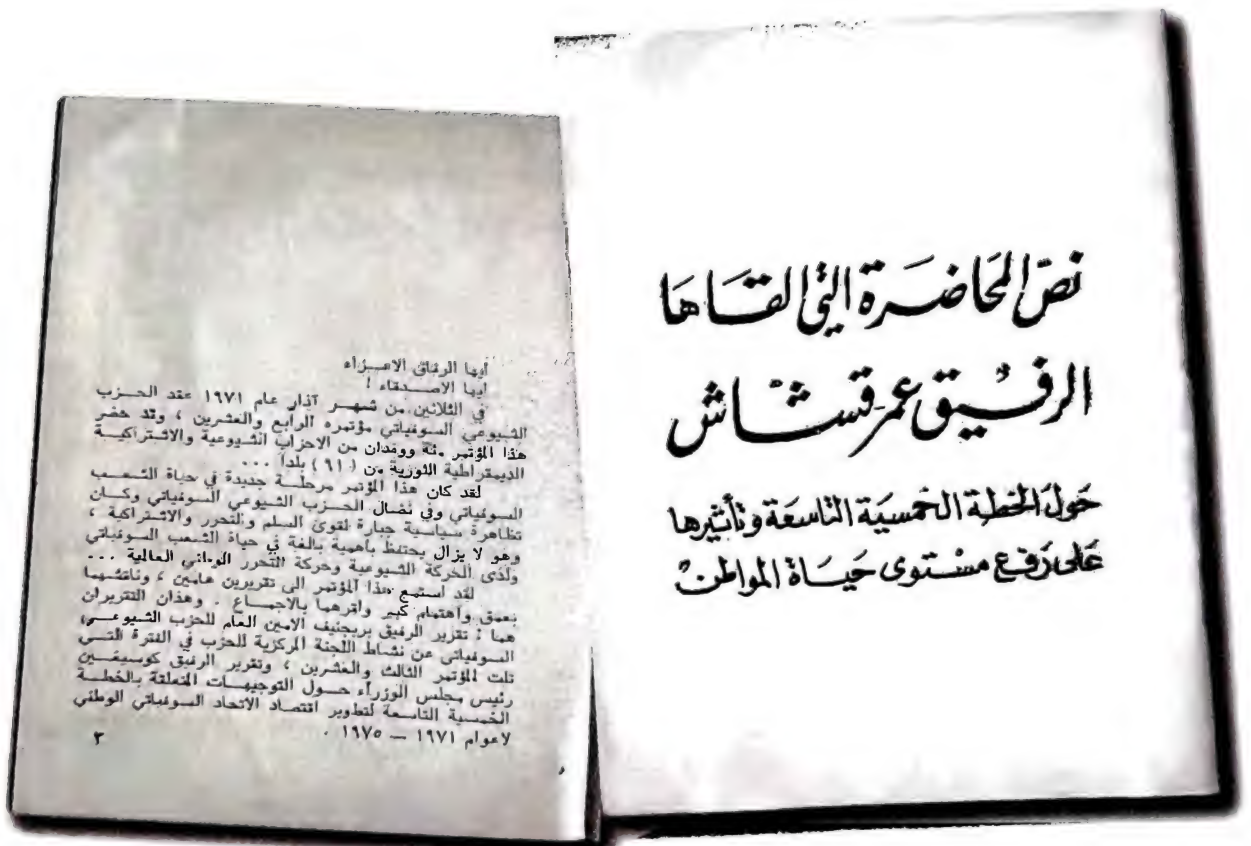 نص المحاضرة التي القاها
الرفيق عمر قشاش
حول الخطة الخمسية التاسعة وتأثيرها
على رفع مستوى حياة المواطن
أيها الرفاق الاعــزاء
ايها الاصــدقاء !
في الثلاثين من شهــر آذار عام ١٩٧١ عقد الحــزب
الشيوعي السوفياتي مؤتمره الرابع والعشرين ، وقد حضر
هذا المؤتمر مئة ووفدان من الاحزاب الشيوعية والاشتراكيــة
الديمقراطية الثورية من ( ٩١ ) بلدا ...
لقد كان هذا المؤتمر مرحلــة جديدة في حياة الشــعب
السوفياتي وفي نضال الحــزب الشيوعي السوفياتي وكــان
تظاهرة سياسية جبارة لقوى السلم والتحرر والاشتراكية ،
وهو لا يزال يحتفظ بأهمية بالغة في حياة الشعب السوفياتي
ولدى الحركة الشيوعية وحركة التحرر الوطني العالمية ...
لقد استمع هذا المؤتمر الى تقريرين هامين ، وناقشهما
بعمق واهتمام كبير واقرهما بالاجمــاع . وهذان التقريران
هما : تقرير الرفيق بريجنيف الامين العام للحزب الشيوعــي
السوفياتي عن نشاط اللجنة المركزية للحزب في الفترة التــي
تلت المؤتمر الثالث والعشرين ، وتقرير الرفيق كوسيغــين
رئيس مجلس الوزراء حــول التوجيهــات المتعلقة بالخطــة
الخمسية التاسعة لتطوير اقتصاد الاتحاد السوفياتي الوطني
لاعوام ١٩٧١ — ١٩٧٥ .
٣